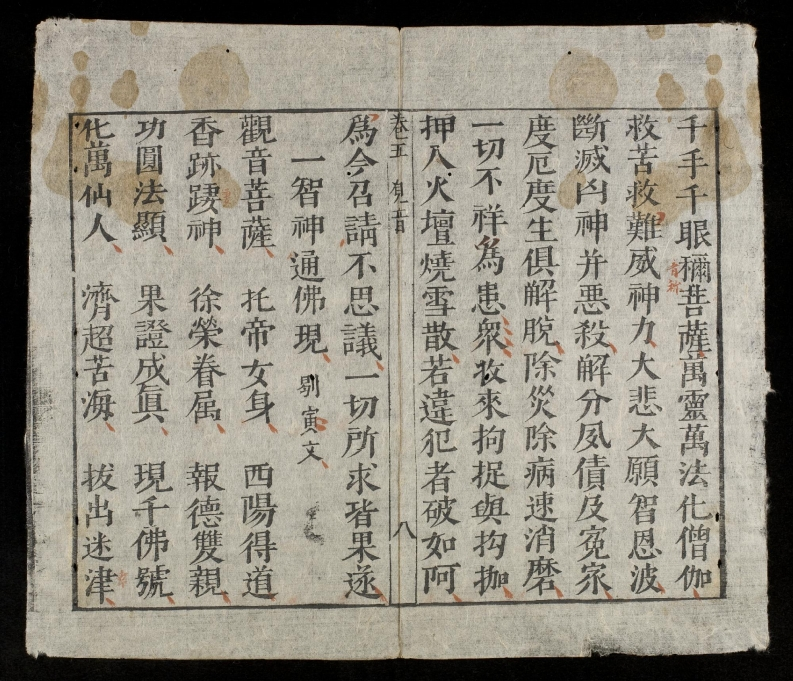 千手千眼
菩薩萬靈萬法化僧伽
救苦救難威神力大悲大願智恩波
斷滅凶神并惡殺解分夙債及冤家
度厄度生俱解脫除災除病速消磨
一切不祥為患衆收來拘捉與枸枷
押入火壇燒雪散若違犯者破如阿
卷五 覌音
八
為今召請不思議一切所求皆果遂
一智神通佛現 剔寅文
觀音菩薩 托帝女身 西陽得道
香跡踥神 徐榮眷属 報德雙親
功圓法顯 果證成眞 現千佛號
化萬仙人 濟超苦海 拔出迷津